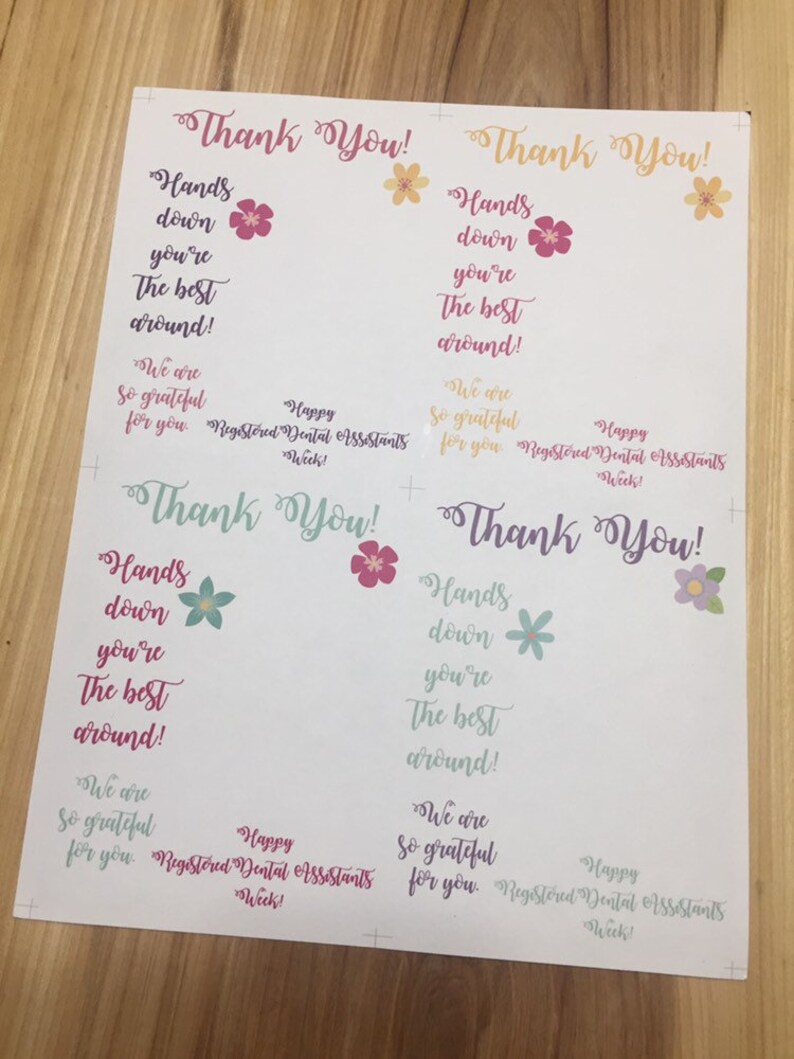 Thank You!
Hands
down
you're
The best
around!
We are
so grateful
for you.
Happy
Registered Dental Assistants
Week!
Thank You!
Hands
down
you're
The best
around!
We are
so grateful
for you.
Happy
Registered Dental Assistants
Week!
Thank You!
Hands
down
you're
The best
around!
We are
so grateful
for you.
Happy
Registered Dental Assistants
Week!
Thank You!
Hands
down
you're
The best
around!
We are
so grateful
for you.
Happy
Registered Dental Assistants
Week!